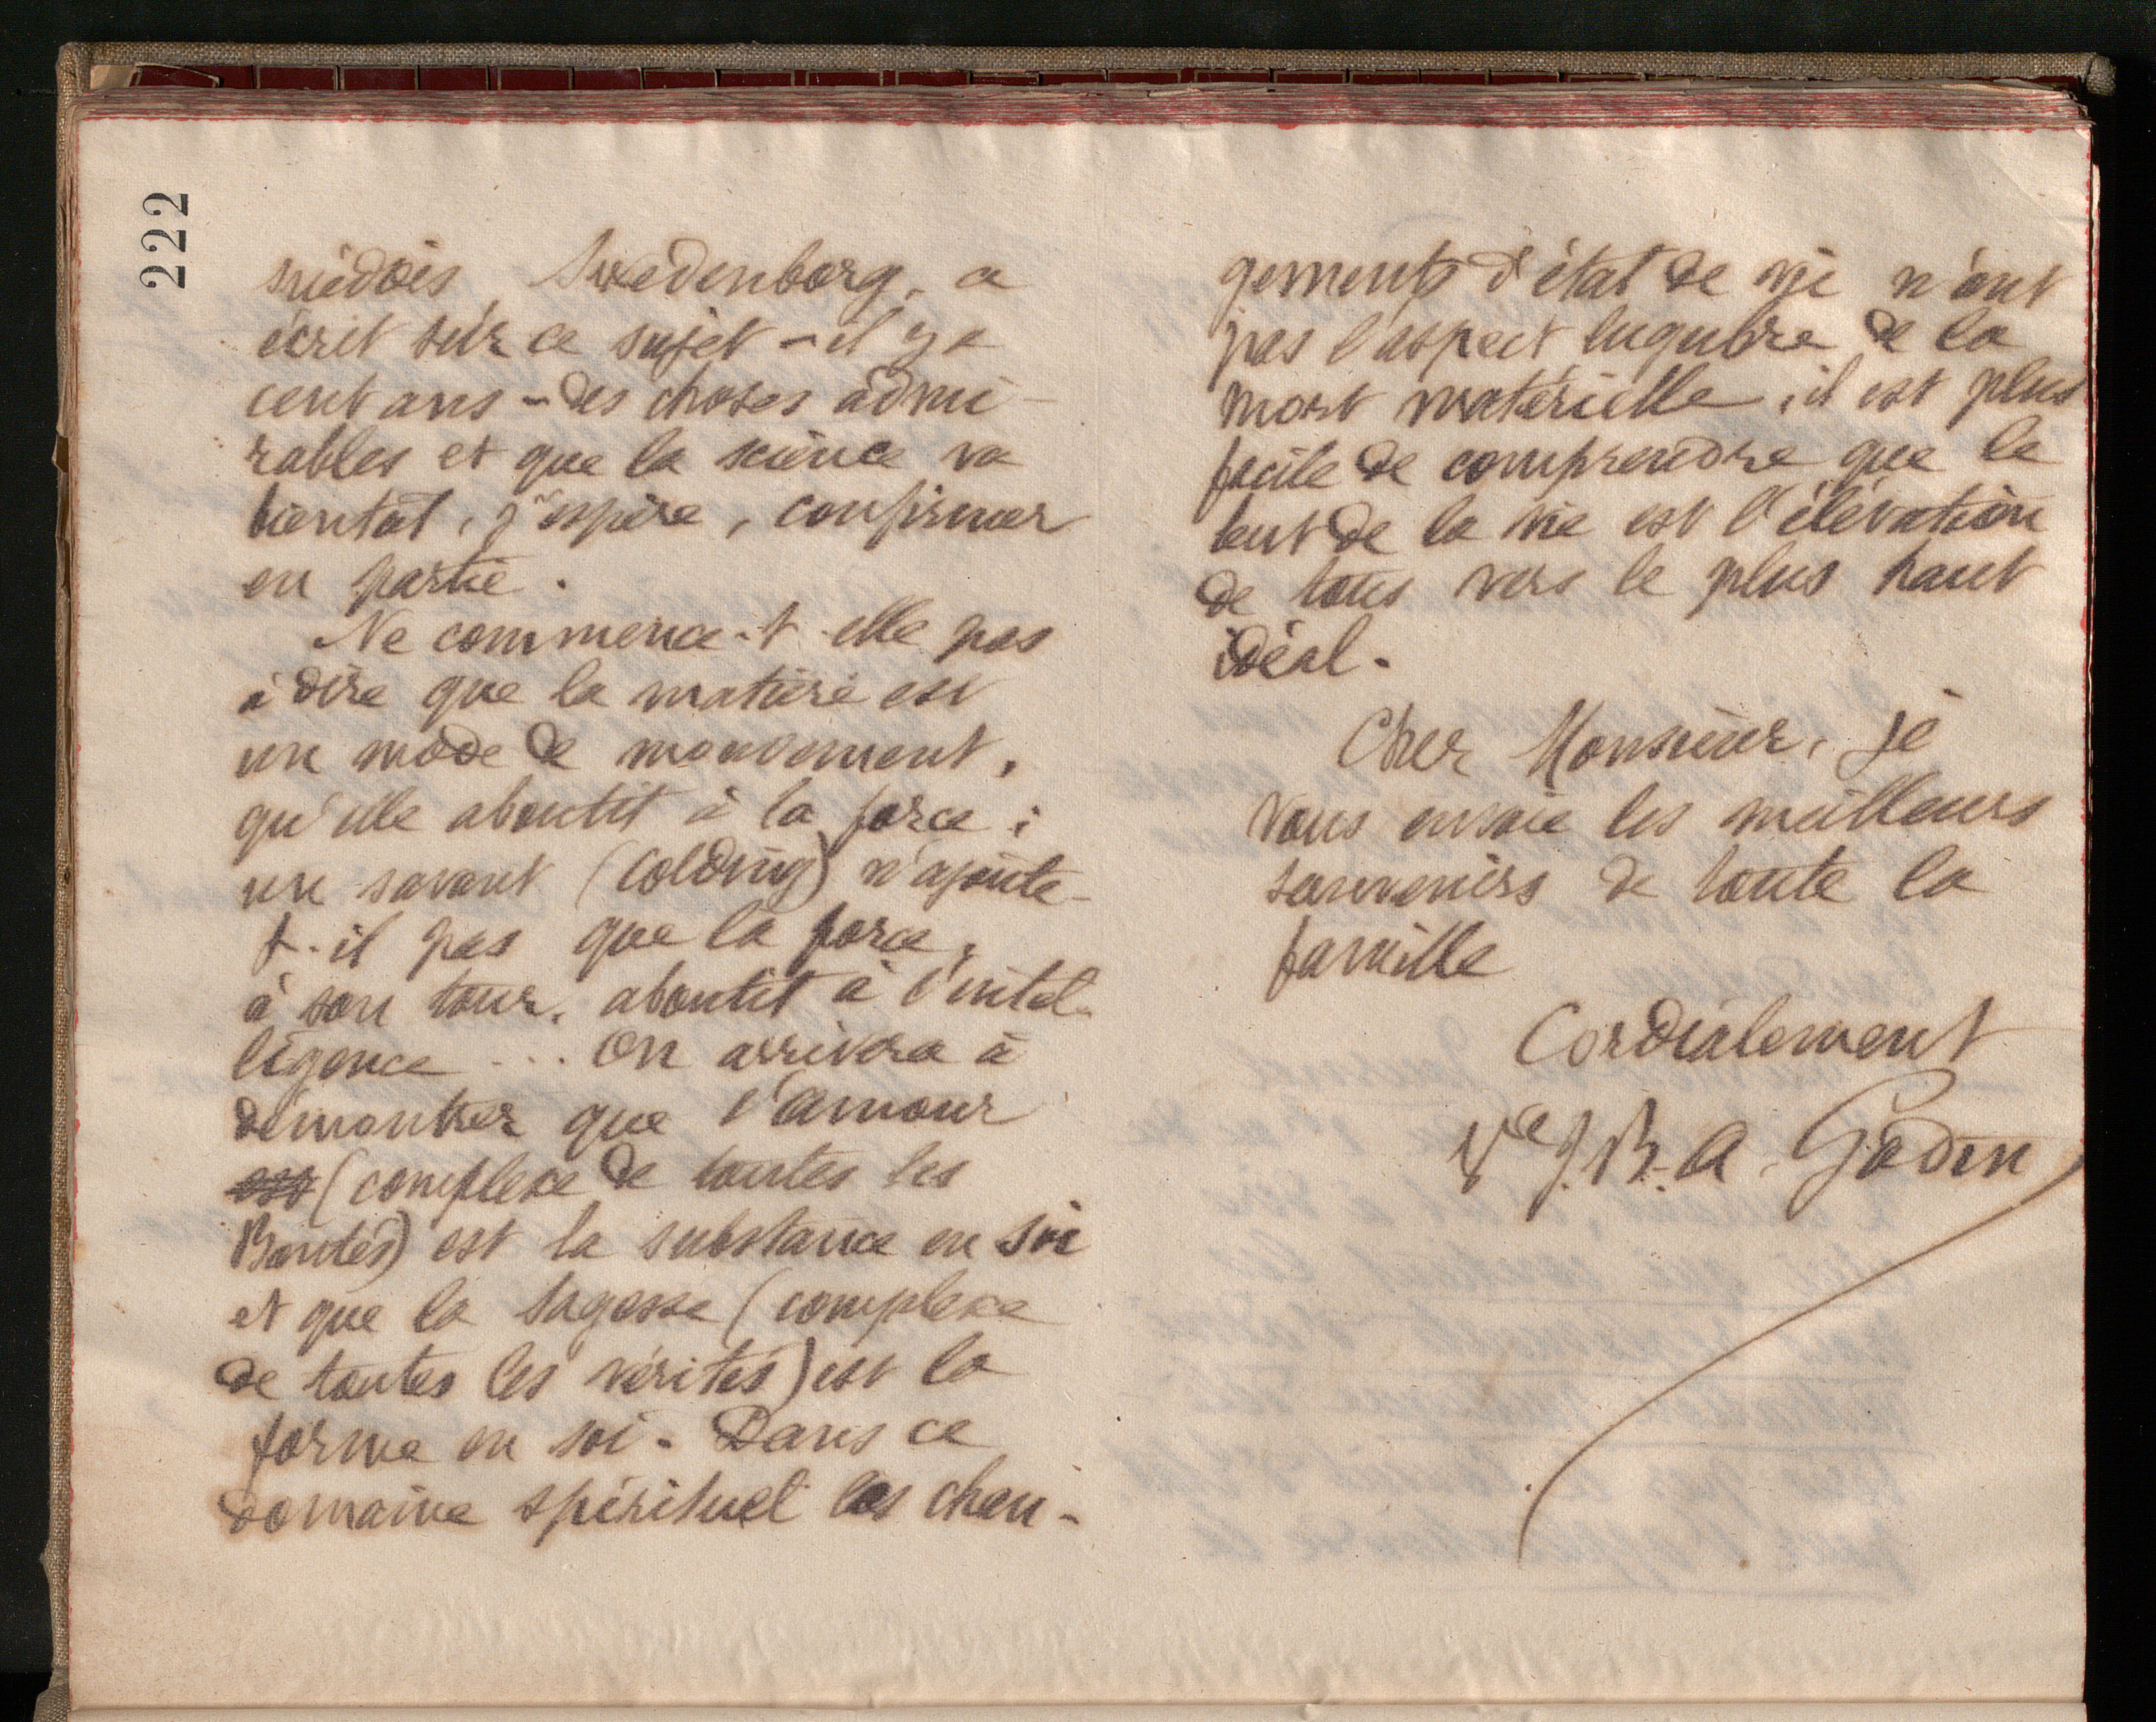 222
suédois, Swedenborg, a
écrit sur ce sujet – il y a
cent ans – des choses admi-
rables et que la science va
bientôt, j'espère, confirmer
en partie.
Ne commence-t-elle pas
à dire que la matière est
un mode de mouvement,
qu'elle aboutit à la force ;
un savant (Colding) n'ajoute-
t-il pas que la force,
à son tour, aboutit à l'intel-
ligence ... On arrivera à
démontrer que l'amour
est (complexe de toutes les
Bontés) est la substance en soi
et que la Sagesse (complexe
de toutes les vérités) est la
forme en soi. Dans ce
domaine spirituel les chan-
gements d'état de vie n'ont
pas l'aspect lugubre de la
mort matérielle, il est plus
facile de comprendre que le
but de la vie est l'élévation
de tous vers le plus haut
idéal.
Cher Monsieur, je
vous envoie les meilleurs
souvenirs de toute la
famille
Cordialement
Ve J. B. A. Godin